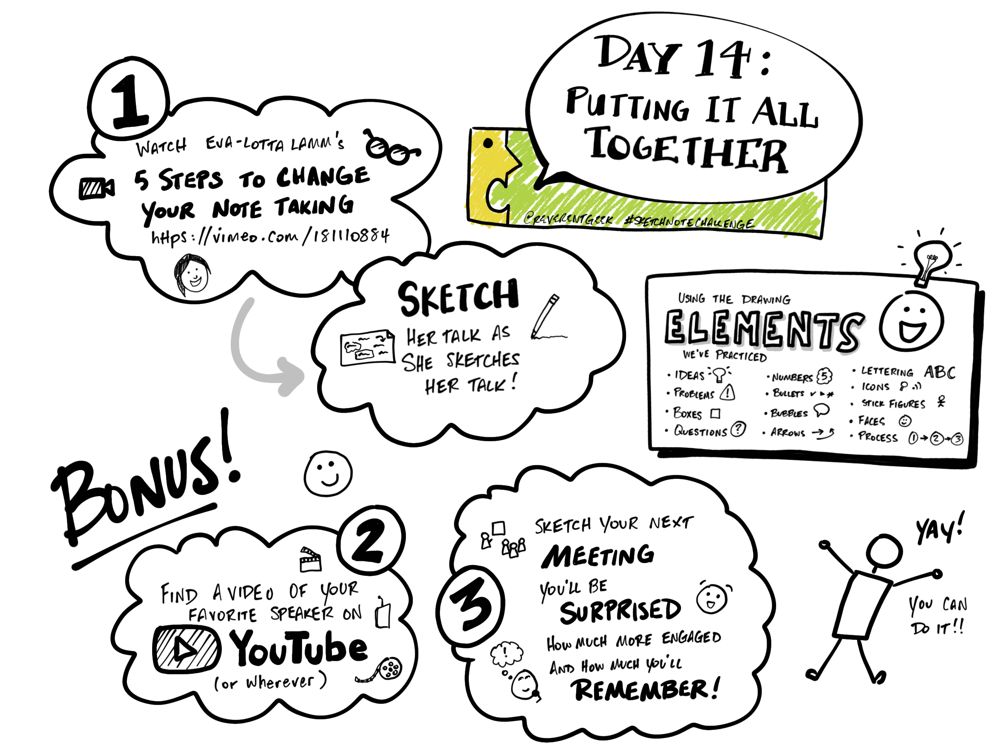 DAY 14:
PUTTING IT ALL
TOGETHER
@REVERENTGEEK #SKETCHNOTECHALLENGE
1
WATCH EVA-LOTTA LAMM's
5 STEPS TO CHANGE
YOUR NOTE TAKING
https://vimeo.com/181110884
SKETCH
HER TALK AS
SHE SKETCHES
HER TALK!
USING THE DRAWING
ELEMENTS
WE'VE PRACTICED
• IDEAS
• PROBLEMS !
• BOXES
• QUESTIONS ?
• NUMBERS 5
• BULLETS
• BUBBLES
• ARROWS
• LETTERING ABC
• ICONS
• STICK FIGURES
• FACES
• PROCESS 1 → 2 → 3
BONUS!
2
FIND A VIDEO OF YOUR
FAVORITE SPEAKER ON
YouTube
(or wherever)
3
SKETCH YOUR NEXT
MEETING
YOU'LL BE
SURPRISED
HOW MUCH MORE ENGAGED
AND HOW MUCH YOU'LL
REMEMBER!
!
YAY!
YOU CAN
DO IT!!